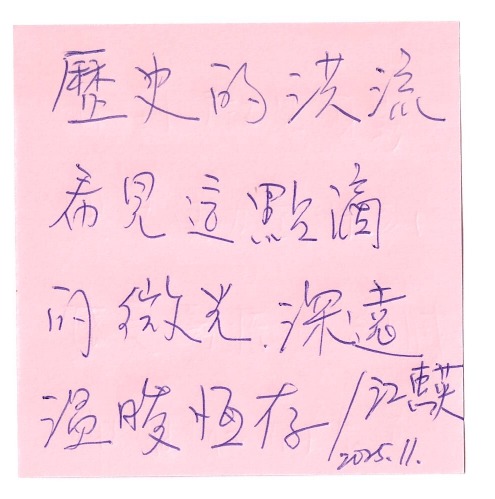 歷史的洪流
看見這點滴
的微光、深遠
溫暖恆存/江惠英
2025.11.